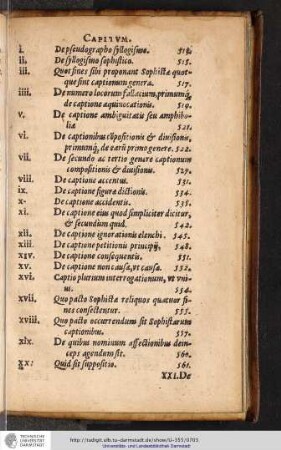 CAPITVM.
i. De pseudographo syllogismo. 513.
ii. De syllogismo sophistico. 515.
iii. Quot fines sibi proponant Sophistæ quot-
que sint captionum genera. 517.
iiii. De numero locorum fallacium, primumq́;
de captione æquiuocationis. 519.
v. De captione ambiguitatis seu amphibo-
liæ 521.
vi. De captionibus cōpositionis & diuisionis,
primumq́; de earū primo genere. 522.
vii. De secundo ac tertio genere captionum
compositionis & diuisionis. 529.
viii. De captione accentus. 531.
ix. De captione figuræ dictionis. 534.
x. De captione accidentis. 535.
xi. De captione eius quod simpliciter dicitur,
& secundum quid. 542.
xii. De captione ignorationis elenchi. 545.
xiii. De captione petitionis principij. 548.
xiv. De captione consequentis. 551.
xv. De captione non causæ, vt causæ. 552.
xvi. Captio plurium interrogationum, vt vnius.
554.
xvii. Quo pacto Sophistæ reliquos quatuor fi-
nes consectentur. 555.
xviii. Quo pacto occurrendum sit Sophistarum
captionibus. 557.
xix. De quibus nominum affectionibus dein-
ceps agendum sit. 560.
xx: Quid sit suppositio. 561.
XXI. De
TECHNISCHE
UNIVERSITÄT
DARMSTADT
http://tudigit.ulb.tu-darmstadt.de/show/G-353/0703
Universitäts- und Landesbibliothek Darmstadt